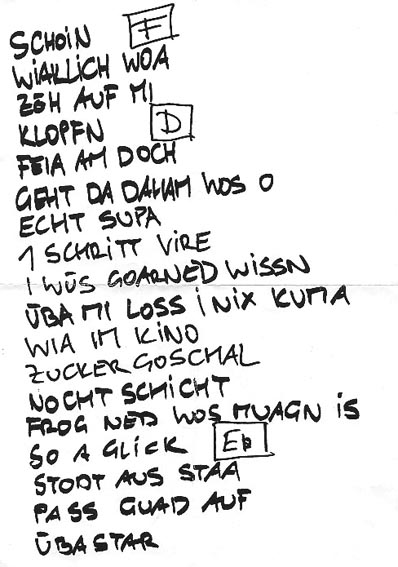 SCHOIN F
WIAKLICH WOA
ZÖH AUF MI
KLOPFN D
FEIA AM DOCH
GEHT DA DAHAM WOS O
ECHT SUPA
1 SCHRITT VIRE
I WÜS GOARNED WISSN
ÜBA MI LOSS I NIX KUMA
WIA IM KINO
ZUCKERGOSCHAL
NOCHTSCHICHT
FROG NED WOS MUAGN IS
SO A GLICK Eb
STODT AUS STAA
PASS GUAD AUF
ÜBASTAR